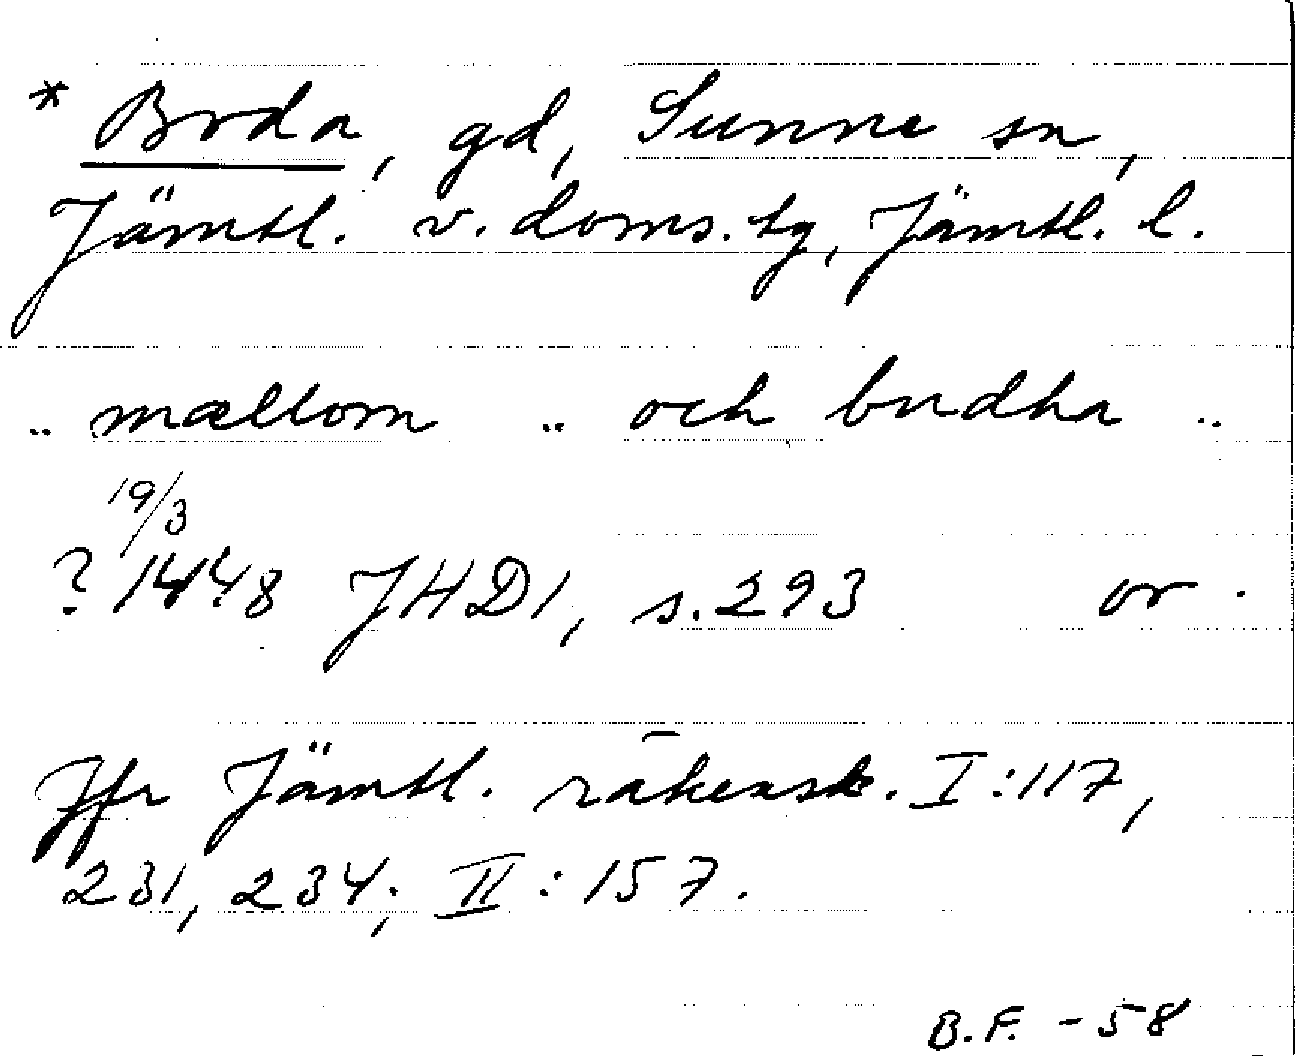 * Boda, gd, Sunne sn,
Jämtl. v. doms. tg, Jämtl. l.
.. mællom .. och budha ..
19/3
? 1448 JHD1, s. 293 or.
Jfr Jämtl. räkensk. I:117,
231, 234; II:157.
B.F. -58